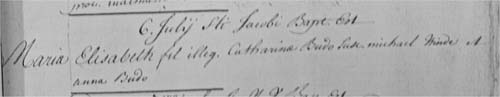 6. Julij Sti Jacobi Bapt. Est
Maria Elisabeth fil illeg. Catharina Budo Susc. michael Winde et
anna Budo